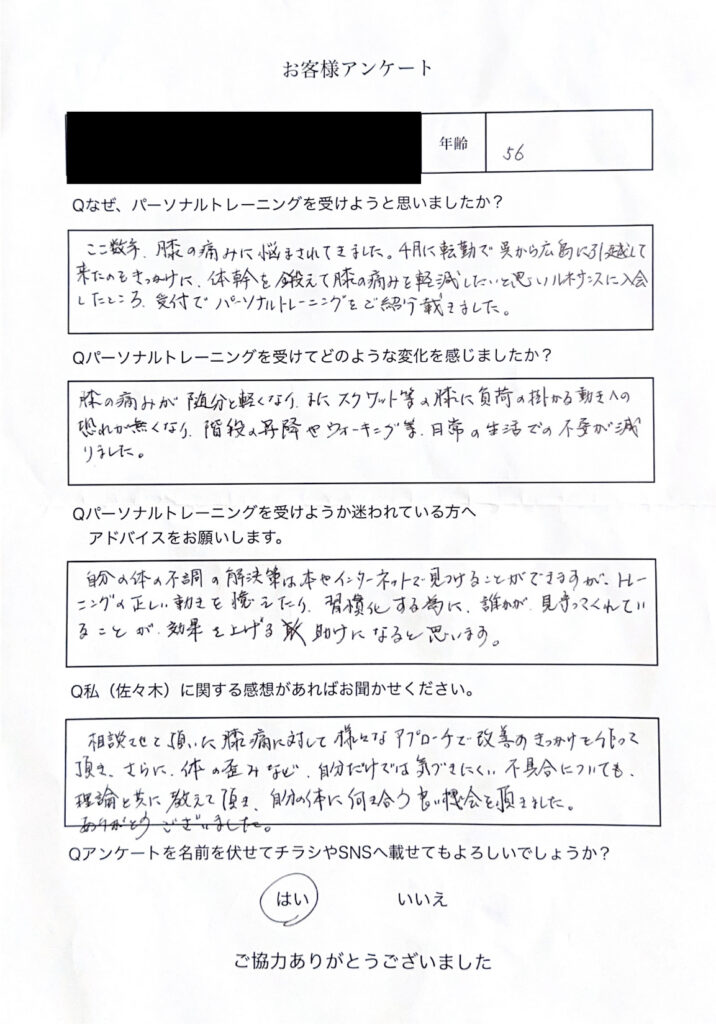 お客様アンケート
年齢
56
Qなぜ、パーソナルトレーニングを受けようと思いましたか？
ここ数年、膝の痛みに悩まされてきました。4月に転勤で呉から広島に引越して
来たのもきっかけに、体幹を鍛えて膝の痛みを軽減したいと思いルネサンスに入会
したところ、受付でパーソナルトレーニングをご紹介載きました。
Qパーソナルトレーニングを受けてどのような変化を感じましたか？
膝の痛みが随分と軽くなり、またスクワット等の膝に負荷の掛かる動きへの
恐れが無くなり、階段の昇降やウォーキング等、日常の生活での不安が減
りました。
Qパーソナルトレーニングを受けようか迷われている方へ
アドバイスをお願いします。
自分の体の不調の解決策は本やインターネットで見つけることができますが、トレー
ニングの正しい動きを憶えたり、習慣化する為に、誰かが見守ってくれてい
ることが、効果を上げる助けになると思います。
Q私（佐々木）に関する感想があればお聞かせください。
相談させて頂いた膝痛に対して様々なアプローチで改善のきっかけを作って
頂き、さらに、体の歪みなど、自分だけでは気づきにくい不具合についても、
理論と共に教えて頂き、自分の体に向き合う良い機会を頂きました。
ありがとうございました。
Qアンケートを名前を伏せてチラシやSNSへ載せてもよろしいでしょうか？
はい いいえ
ご協力ありがとうございました